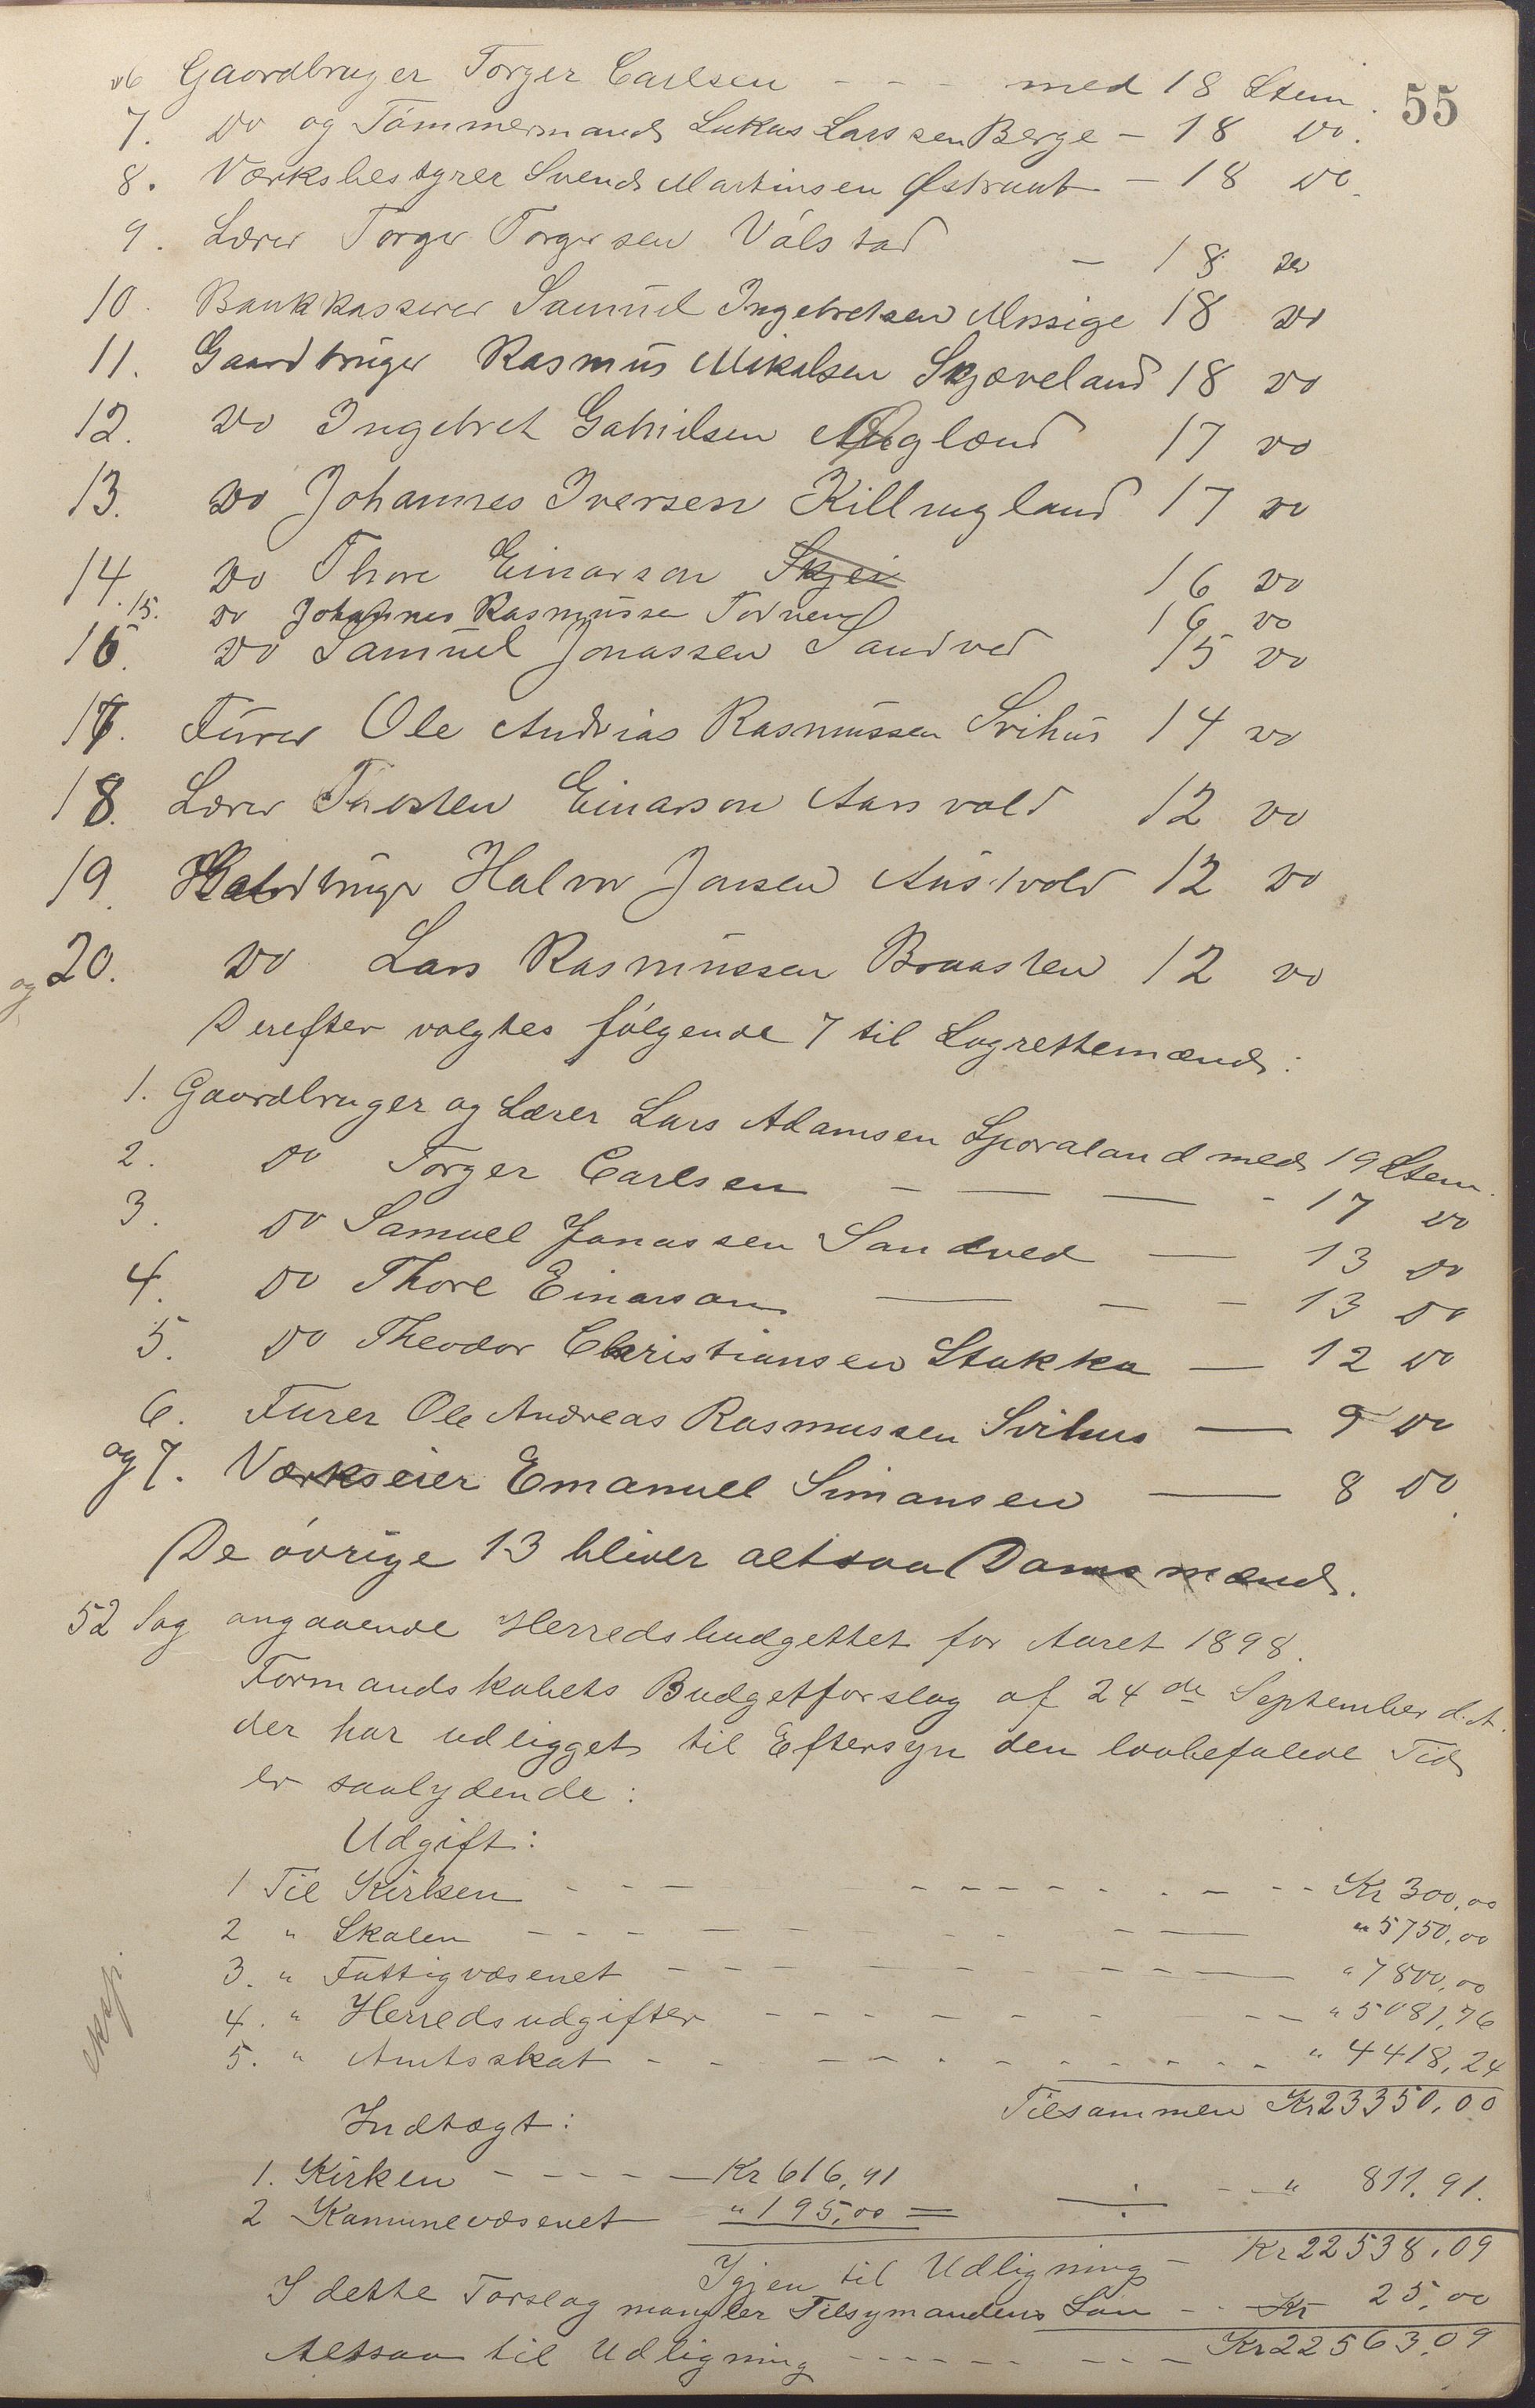 55
6 Gaardbruger Torger Carlsen - - - med 18 Stem.
7. Do og Tömmermand Lukas Larssen Berge - 18 Do.
8. Værksbestyrer Svend Martinsen Østraat - 18 Do.
9. Lærer Torger Torgersen Válstad - 18 Do
10. Bankkasserer Samuel Ingebretsen Mossige 18 Do
11. Gaardbruger Rasmus Mikalsen Skjæveland 18 Do
12. Do Ingebret Gabrielsen 17 Do
13. Do Johannes Iversen Killingland 17 Do
14. Do Thore Einarson Skjei 16 Do
15. Do Johannes Rasmussen 16 Do
16. Do Samuel Jonassen Sandved 15 Do
17. Furer Ole Andreas Rasmussen Svihus 14 Do
18. Lærer Thorsten Einarson Aarsvold 12 Do
19. Gaardbruger Halvor Jonsen Austvold 12 Do
og 20. Do Lars Rasmussen Braasten 12 Do
Derefter valgtes fölgende 7 til Lagrettemænd:
1. Gaardbruger og Lærer Lars Adamsen Sporaland med 19 Stem.
2. Do Torger Carlsen - - - - 17 Do
3. Do Samuel Jonassen Sandved - 13 Do
4. Do Thore Einarson - - - 13 Do
5. Do Theodor Christiansen Stokka - 12 Do
6. Furer Ole Andreas Rasmussen Svihus - 9 Do
og 7. Værkseier Emanuel Simonsen - 8 Do.
De óvrige 13 bliver altsaa Domsmænd.
52 Sag angaaende Herredsbudgettet for Aaret 1898.
Formandskabets Budgetforslag af 24de September d.A.
der har udligget til Eftersyn den lovbefalede Tid
er saalydende:
Udgift:
1 Til Kirken - - - Kr 300,00
2 " Skolen - - - " 5750,00
3. " Fattigvæsenet - - - " 7800,00
eksp.
4. " Herredsudgifter - - - " 5081,76
5. " Amtsskat - - - " 4418,24
Tilsammen Kr 23350,00
Indtægt:
1. Kirken - - - - Kr 616,91
2 Komunevæsenet " 195,00 = ÷ - " 811,91.
Igjen til Udligning - Kr 22538,09
I dette Forslag mangler Tilsynsmandens Lön - - Kr 25,00
Altsaa til Udligning - - - Kr 22563,09